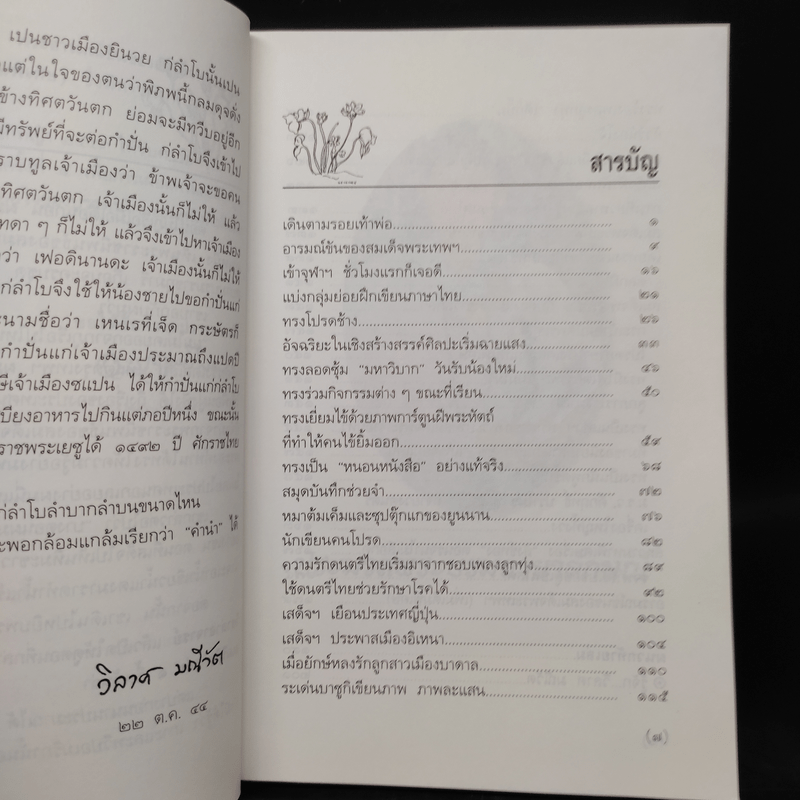 เปนชาวเมืองยินวย ก่ลำโบนั้นเปน
แต่ในใจของตนว่าพิภพนี้กลมดุจดั่ง
ข้างทิศตวันตก ย่อมจะมีทวีบอยู่อีก
มีทรัพย์ที่จะต่อกำปั่น ก่ลำโบจึงเข้าไป
ราบทูลเจ้าเมืองว่า ข้าพเจ้าจะขอคน
ทิศตวันตก เจ้าเมืองนั้นก็ไม่ให้ แล้ว
ทดา ๆ ก็ไม่ให้ แล้วจึงเข้าไปหาเจ้าเมือง
ว่า เฟอดินานดะ เจ้าเมืองนั้นก็ไม่ให้
ก่ลำโบจึงใช้ให้น้องชายไปขอกำปั่นแก่
นามชื่อว่า เหนเรที่เจ็ด กระษัตรก็
กำปั่นแก่เจ้าเมืองประมาณถึงแปดปี
เจ้าเมืองซแปน ได้ให้กำปั่นแก่ก่ลำโบ
เบียงอาหารไปกินแต่ภอปีหนึ่ง ขณะนั้น
ราชพระเยซูได้ ๑๔๙๒ ปี ศักราชไทย
ก่ลำโบลำบากลำบนขนาดไหน
พอกล้อมแกล้มเรียกว่า "คำนำ" ได้
วิลาศ มณีวัต
๒๒ ต.ค. ๔๔
สารบัญ
เดินตามรอยเท้าพ่อ ๑
อารมณ์ขันของสมเด็จพระเทพฯ ๙
เข้าจุฬาฯ ชั่วโมงแรกก็เจอดี ๑๖
แบ่งกลุ่มย่อยฝึกเขียนภาษาไทย ๒๑
ทรงโปรดช้าง ๒๖
อัจฉริยะในเชิงสร้างสรรค์ศิลปะเริ่มฉายแสง ๓๓
ทรงลอดซุ้ม "มหาวิบาก" วันรับน้องใหม่ ๔๖
ทรงร่วมกิจกรรมต่าง ๆ ขณะที่เรียน ๕๐
ทรงเยี่ยมไข้ด้วยภาพการ์ตูนฝีพระหัตถ์
ที่ทำให้คนไข้ยิ้มออก ๕๔
ทรงเป็น "หนอนหนังสือ" อย่างแท้จริง ๖๘
สมุดบันทึกช่วยจำ ๗๒
หมาต้มเค็มและซุปตุ๊กแกของยูนนาน ๗๖
นักเขียนคนโปรด ๘๒
ความรักดนตรีไทยเริ่มมาจากชอบเพลงลูกทุ่ง ๘๙
ใช้ดนตรีไทยช่วยรักษาโรคได้ ๙๒
เสด็จฯ เยือนประเทศญี่ปุ่น ๑๐๐
เสด็จฯ ประพาสเมืองอิเหนา ๑๐๔
เมื่อยักษ์หลงรักลูกสาวเมืองบาดาล ๑๑๐
ระเด่นบาซูกิเขียนภาพ ภาพละแสน ๑๑๕
(๗)